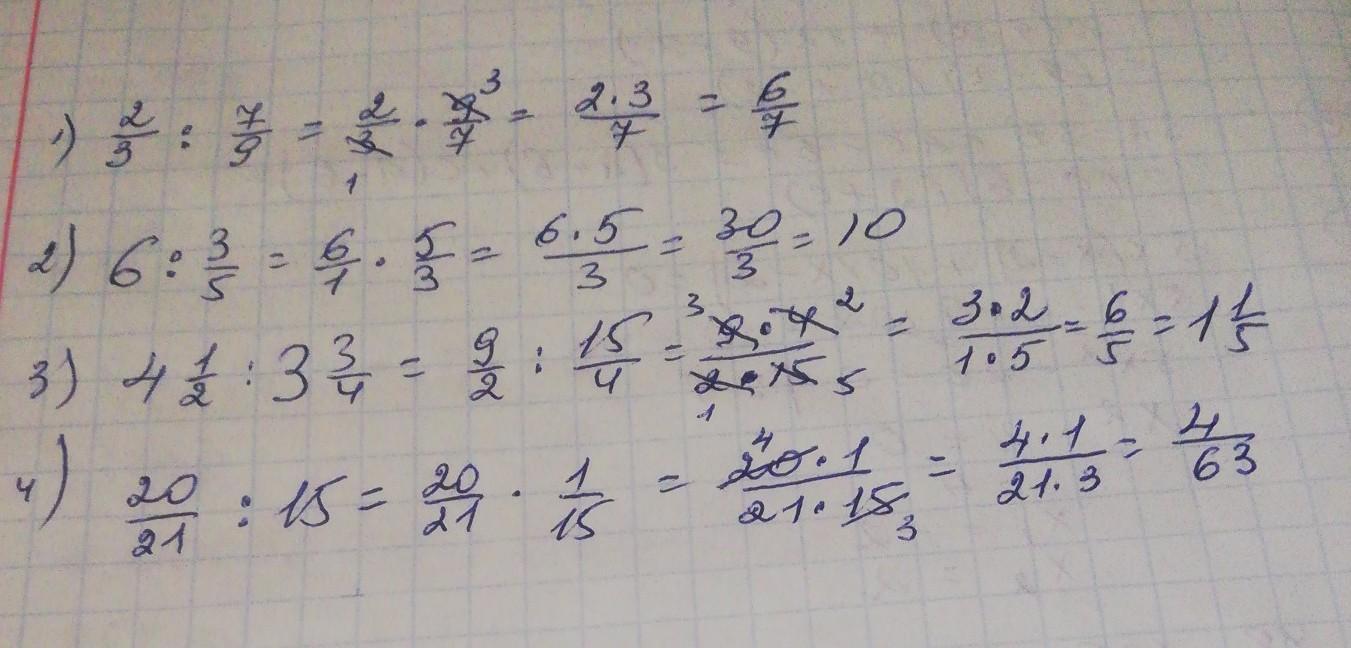 1) 2/3 : 7/9 = 2/3 1 · 9/7 3 = 2·3/7 = 6/7
2) 6 : 3/5 = 6/1 · 5/3 = 6·5/3 = 30/3 = 10
3) 4 1/2 : 3 3/4 = 9/2 : 15/4 = 3 9·4 2/1 2·15 5 = 3·2/1·5 = 6/5 = 1 1/5
4) 20/21 : 15 = 20/21 · 1/15 = 4 20·1/21·15 3 = 4·1/21·3 = 4/63